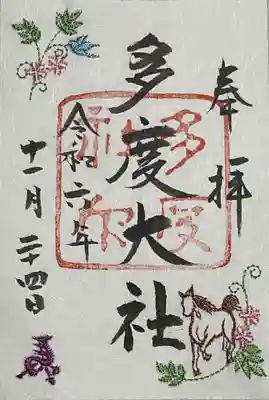 奉拝
多度大社
令和六年
十一月二十四日